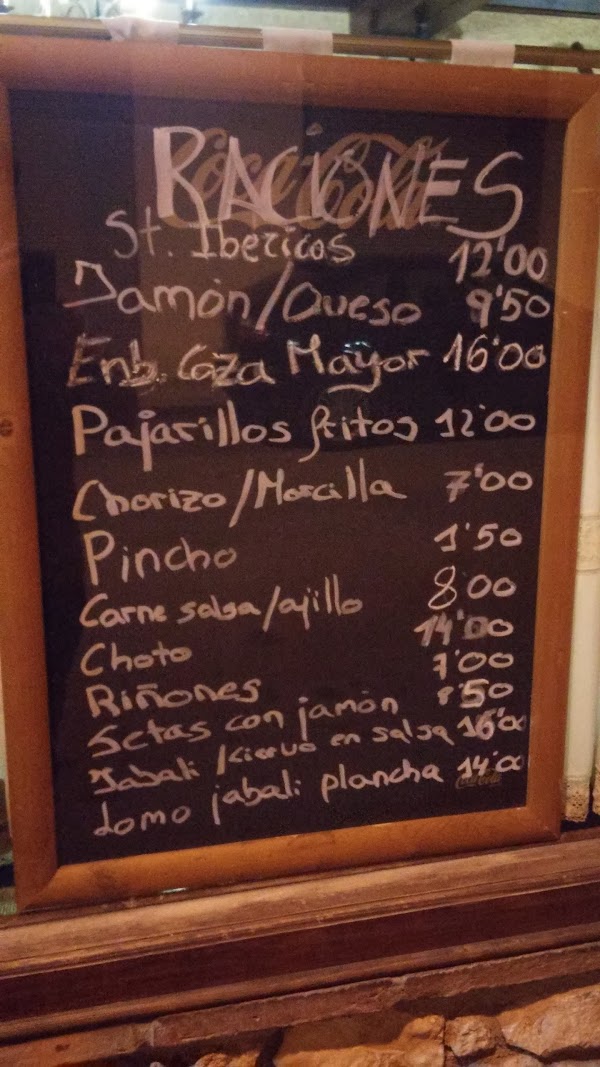 RACIONES
Coca-Cola
St. Ibericos 12'00
Jamón/Queso 9'50
Enb. Caza Mayor 16'00
Pajarillos fritos 12'00
Chorizo/Morcilla 7'00
Pincho 1'50
Carne salsa/ajillo 8'00
Choto 14'00
Riñones 7'00
Setas con jamón 8'50
Jabali/Ciervo en salsa 16'00
Lomo jabali plancha 14'00
Coca-Cola